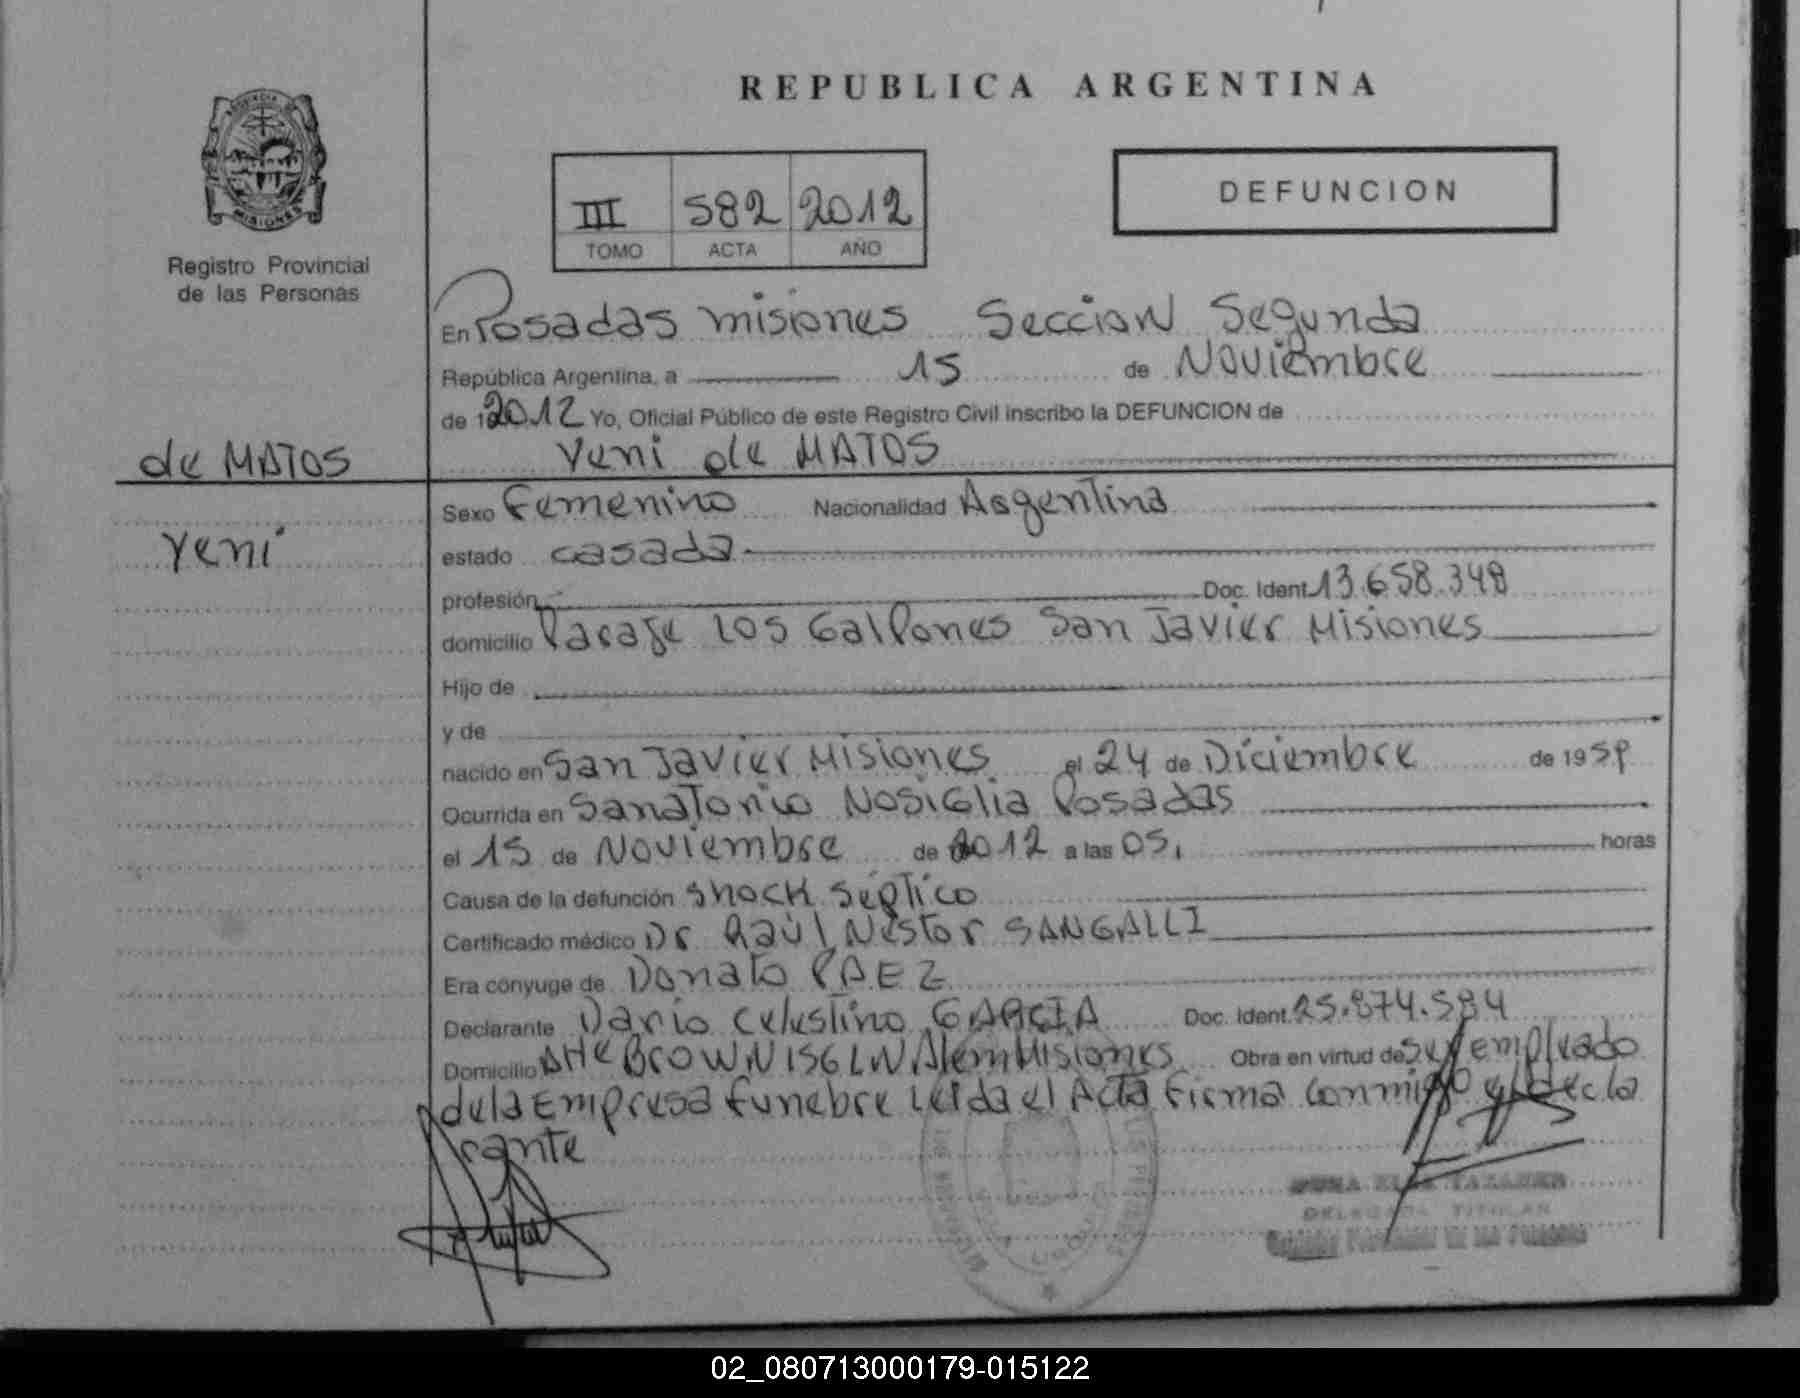 REPUBLICA ARGENTINA
DEFUNCION
III 582 2012
TOMO ACTA AÑO
MISIONES
Registro Provincial
de las Personas
En Posadas misiones Seccion Segunda
República Argentina, a 15 de Noviembre
de 2012 Yo, Oficial Público de este Registro Civil inscribo la DEFUNCION de
Yeni de MATOS
de MATOS
Yeni
Sexo Femenino Nacionalidad Argentina
estado casada
profesión Doc. Ident. 13.658.348
domicilio Paraje Los Galpones San Javier Misiones
Hijo de
y de
nacido en San Javier Misiones el 24 de Diciembre de 1959
Ocurrida en Sanatorio Nosiglia Posadas
el 15 de Noviembre de 2012 a las 05, horas
Causa de la defunción shock séptico
Certificado médico Dr Raúl Néstor SANGALLI
Era cónyuge de Donato PAEZ
Declarante Dario Celestino GARCIA Doc. Ident. 25.874.584
Domicilio Alte BROWN 156 LN Alem Misiones Obra en virtud de ser empleado
de la Empresa funebre Leida el Acta firma conmigo el decla
rante
DELEGADA TITULAR
02_080713000179-015122